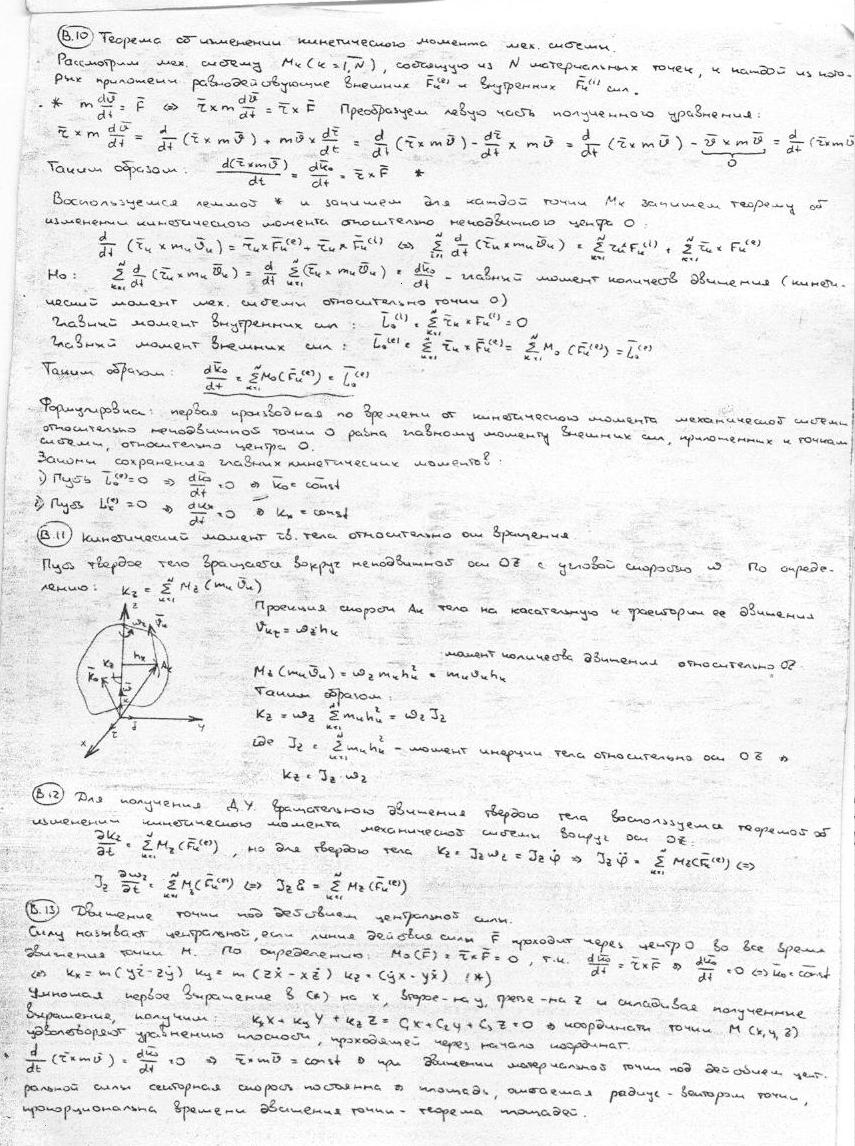 В.10 Теорема об изменении кинетического момента мех. системы.
Рассмотрим мех. систему Mₖ (k = 1,N), состоящую из N материальных точек, к каждой из кото-
рых приложены равнодействующие внешних F̄ₖ⁽ᵉ⁾ и внутренних F̄ₖ⁽ⁱ⁾ сил.
* m dv̄/dt = F̄ ⇔ r̄ × m dv̄/dt = r̄ × F̄ Преобразуем левую часть полученного уравнения:
r̄ × m dv̄/dt = d/dt (r̄ × m v̄) + m v̄ × dr̄/dt = d/dt (r̄ × m v̄) − dr̄/dt × m v̄ = d/dt (r̄ × m v̄) − v̄ × m v̄ = d/dt (r̄ × m v̄
0
Таким образом: d(r̄ × m v̄)/dt = dk̄₀/dt = r̄ × F̄ *
Воспользуемся леммой * и запишем для каждой точки Mₖ запишем теорему об
изменении кинетического момента относительно неподвижного центра O:
d/dt (r̄ₖ × mₖ v̄ₖ) = r̄ₖ × F̄ₖ⁽ᵉ⁾ + r̄ₖ × F̄ₖ⁽ⁱ⁾ ⇔ Σ d/dt (r̄ₖ × mₖ v̄ₖ) = Σ r̄ₖ × Fₖ⁽ⁱ⁾ + Σ r̄ₖ × Fₖ⁽ᵉ⁾
Но: Σ d/dt (r̄ₖ × mₖ v̄ₖ) = d/dt Σ (r̄ₖ × mₖ v̄ₖ) = dk̄₀/dt - главный момент количеств движения (кинети-
ческий момент мех. системы относительно точки O)
Главный момент внутренних сил: L̄₀⁽ⁱ⁾ = Σ r̄ₖ × Fₖ⁽ⁱ⁾ = 0
Главный момент внешних сил: L̄₀⁽ᵉ⁾ = Σ r̄ₖ × F̄ₖ⁽ᵉ⁾ = Σ M₀ (F̄ₖ⁽ᵉ⁾) = L̄₀⁽ᵉ⁾
Таким образом: dk̄₀/dt = Σ M₀(F̄ₖ⁽ᵉ⁾) = L̄₀⁽ᵉ⁾
Формулировка: первая производная по времени от кинетического момента механической системы
относительно неподвижной точки O равна главному моменту внешних сил, приложенных к точкам
системы, относительно центра O.
Законы сохранения главных кинетических моментов:
1) Пусть L̄₀⁽ᵉ⁾ = 0 ⇒ dk̄₀/dt = 0 ⇒ k̄₀ = const
2) Пусть Lₓ⁽ᵉ⁾ = 0 ⇒ dkₓ/dt = 0 ⇒ kₓ = const
В.11 Кинетический момент тв. тела относительно оси вращения.
Пусть твердое тело вращается вокруг неподвижной оси OZ с угловой скоростью ω По опреде-
лению: k_z = Σ M_z (mₖ v̄ₖ)
Проекция скорости Aₖ тела на касательную к траектории ее движения
v_kτ = ω_z hₖ
момент количества движения относительно OZ
M_z (mₖ v̄ₖ) = ω_z mₖ hₖ² = mₖ vₖ hₖ
Таким образом:
k_z = ω_z Σ mₖ hₖ² = ω_z J_z
где J_z = Σ mₖ hₖ² - момент инерции тела относительно оси OZ ⇒
k_z = J_z · ω_z
В.12 Для получения Д.У. вращательного движения твердого тела воспользуемся теоремой об
изменении кинетического момента механической системы вокруг оси OZ:
∂k_z/∂t = Σ M_z (F̄ₖ⁽ᵉ⁾), но для твердого тела k_z = J_z ω_z = J_z φ̇ ⇒ J_z φ̈ = Σ M_z (F̄ₖ⁽ᵉ⁾) ⇔
J_z ∂ω_z/∂t = Σ M_z (F̄ₖ⁽ᵉ⁾) ⇔ J_z ε = Σ M_z (F̄ₖ⁽ᵉ⁾)
В.13 Движение точки под действием центральной силы.
Силу называют центральной, если линия действия силы F̄ проходит через центр O во все время
движения точки M. По определению: M₀(F̄) = r̄ × F̄ = 0, т.к. dk̄₀/dt = r̄ × F̄ ⇒ dk̄₀/dt = 0 ⇔ k̄₀ = const
⇔ kₓ = m(yż − zẏ) k_y = m(zẋ − xż) k_z = (ẏx − yẋ) (*)
Умножая первое выражение в (*) на x, второе - на y, третье - на z и складывая полученные
выражение, получим: kₓx + k_y y + k_z z = C₁x + C₂y + C₃z = 0 ⇒ координаты точки M (x, y, z)
удовлетворяют уравнению плоскости, проходящей через начало координат.
d/dt (r̄ × m v̄) = dk̄₀/dt = 0 ⇒ r̄ × m v̄ = const ⇒ при движении материальной точки под действием цент-
ральной силы секторная скорость постоянна ⇒ площадь, ометаемая радиус-вектором точки,
пропорциональна времени движения точки - теорема площадей.